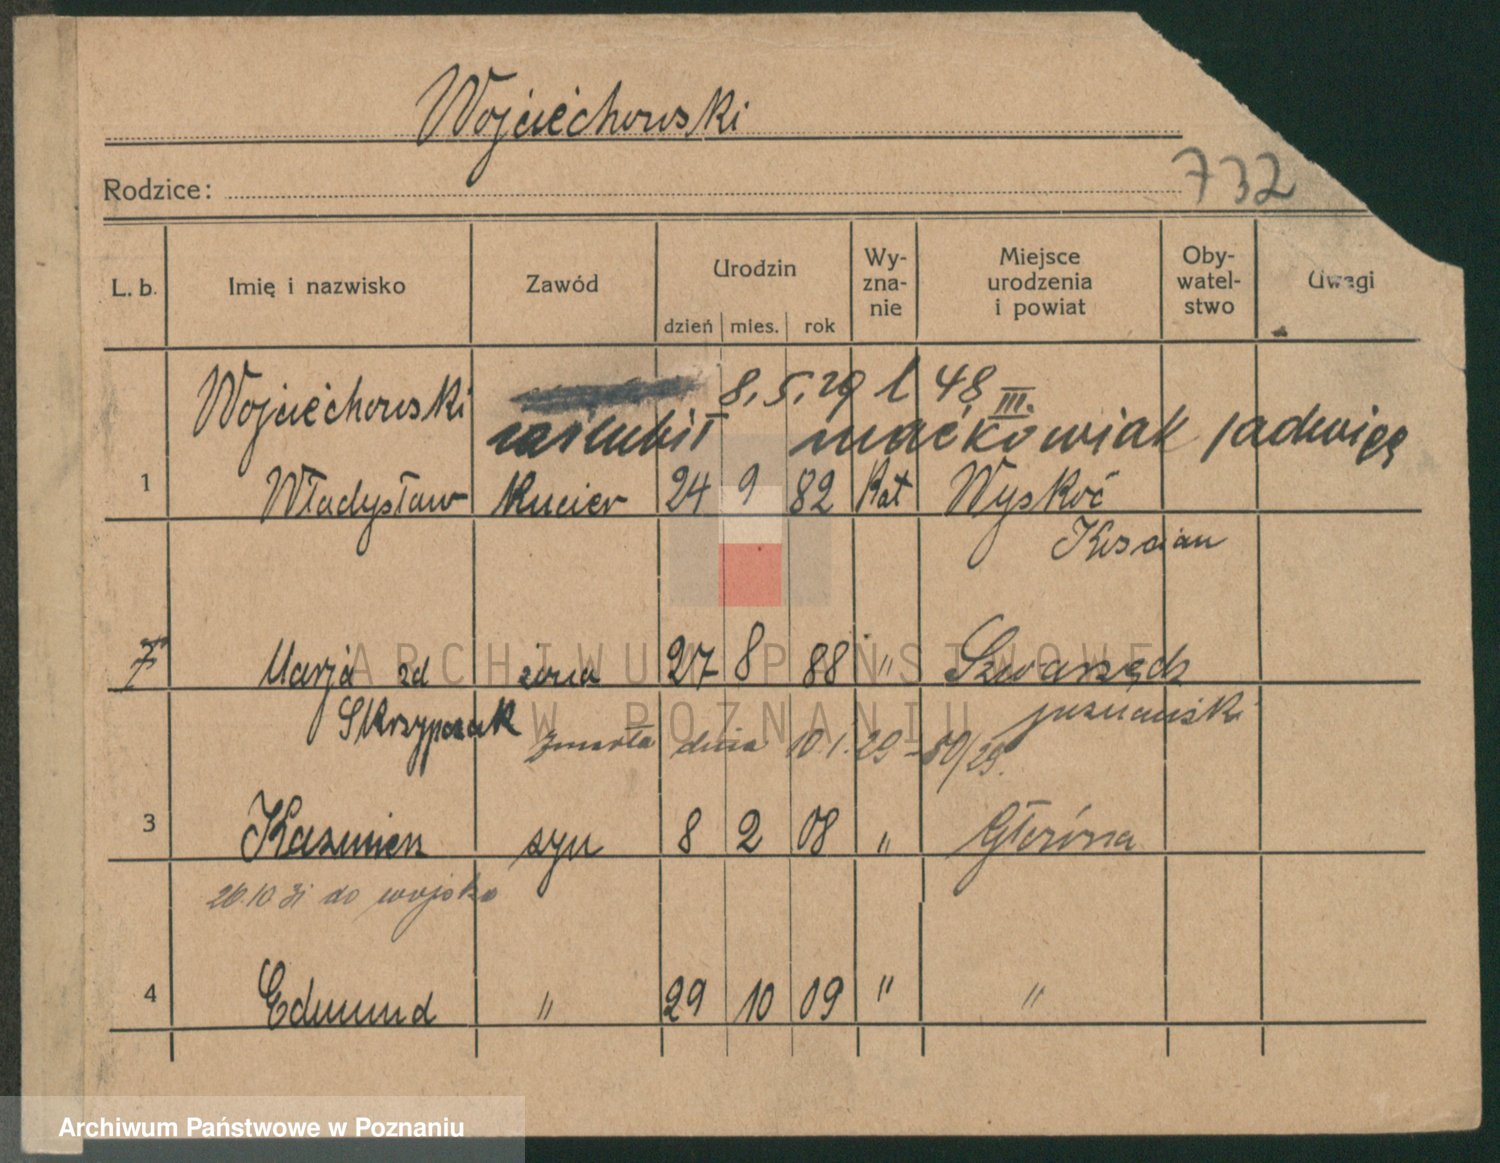 Wojciechowski
Rodzice:
732
L. b. Imię i nazwisko Zawód Urodzin Wy-zna-nie Miejsce urodzenia i powiat Oby-watel-stwo Uwagi
dzień mies. rok
Wojciechowski 8.5.29 l 48 III.
zaślubił Maćkowiak Jadwigę
1 Władysław Kucier 24 9 82 Kat Wyskoć
Kościan
Marja zd żona 27 8 88 " Szwarzędz
Skrzypczak poznański
zmarła dnia 10.1.29 - 50/29.
3 Kazimierz syn 8 2 08 " Główna
26.10 31 do wojska
4 Edmund " 29 10 09 " "
ARCHIWUM PAŃSTWOWE
W POZNANIU
Archiwum Państwowe w Poznaniu